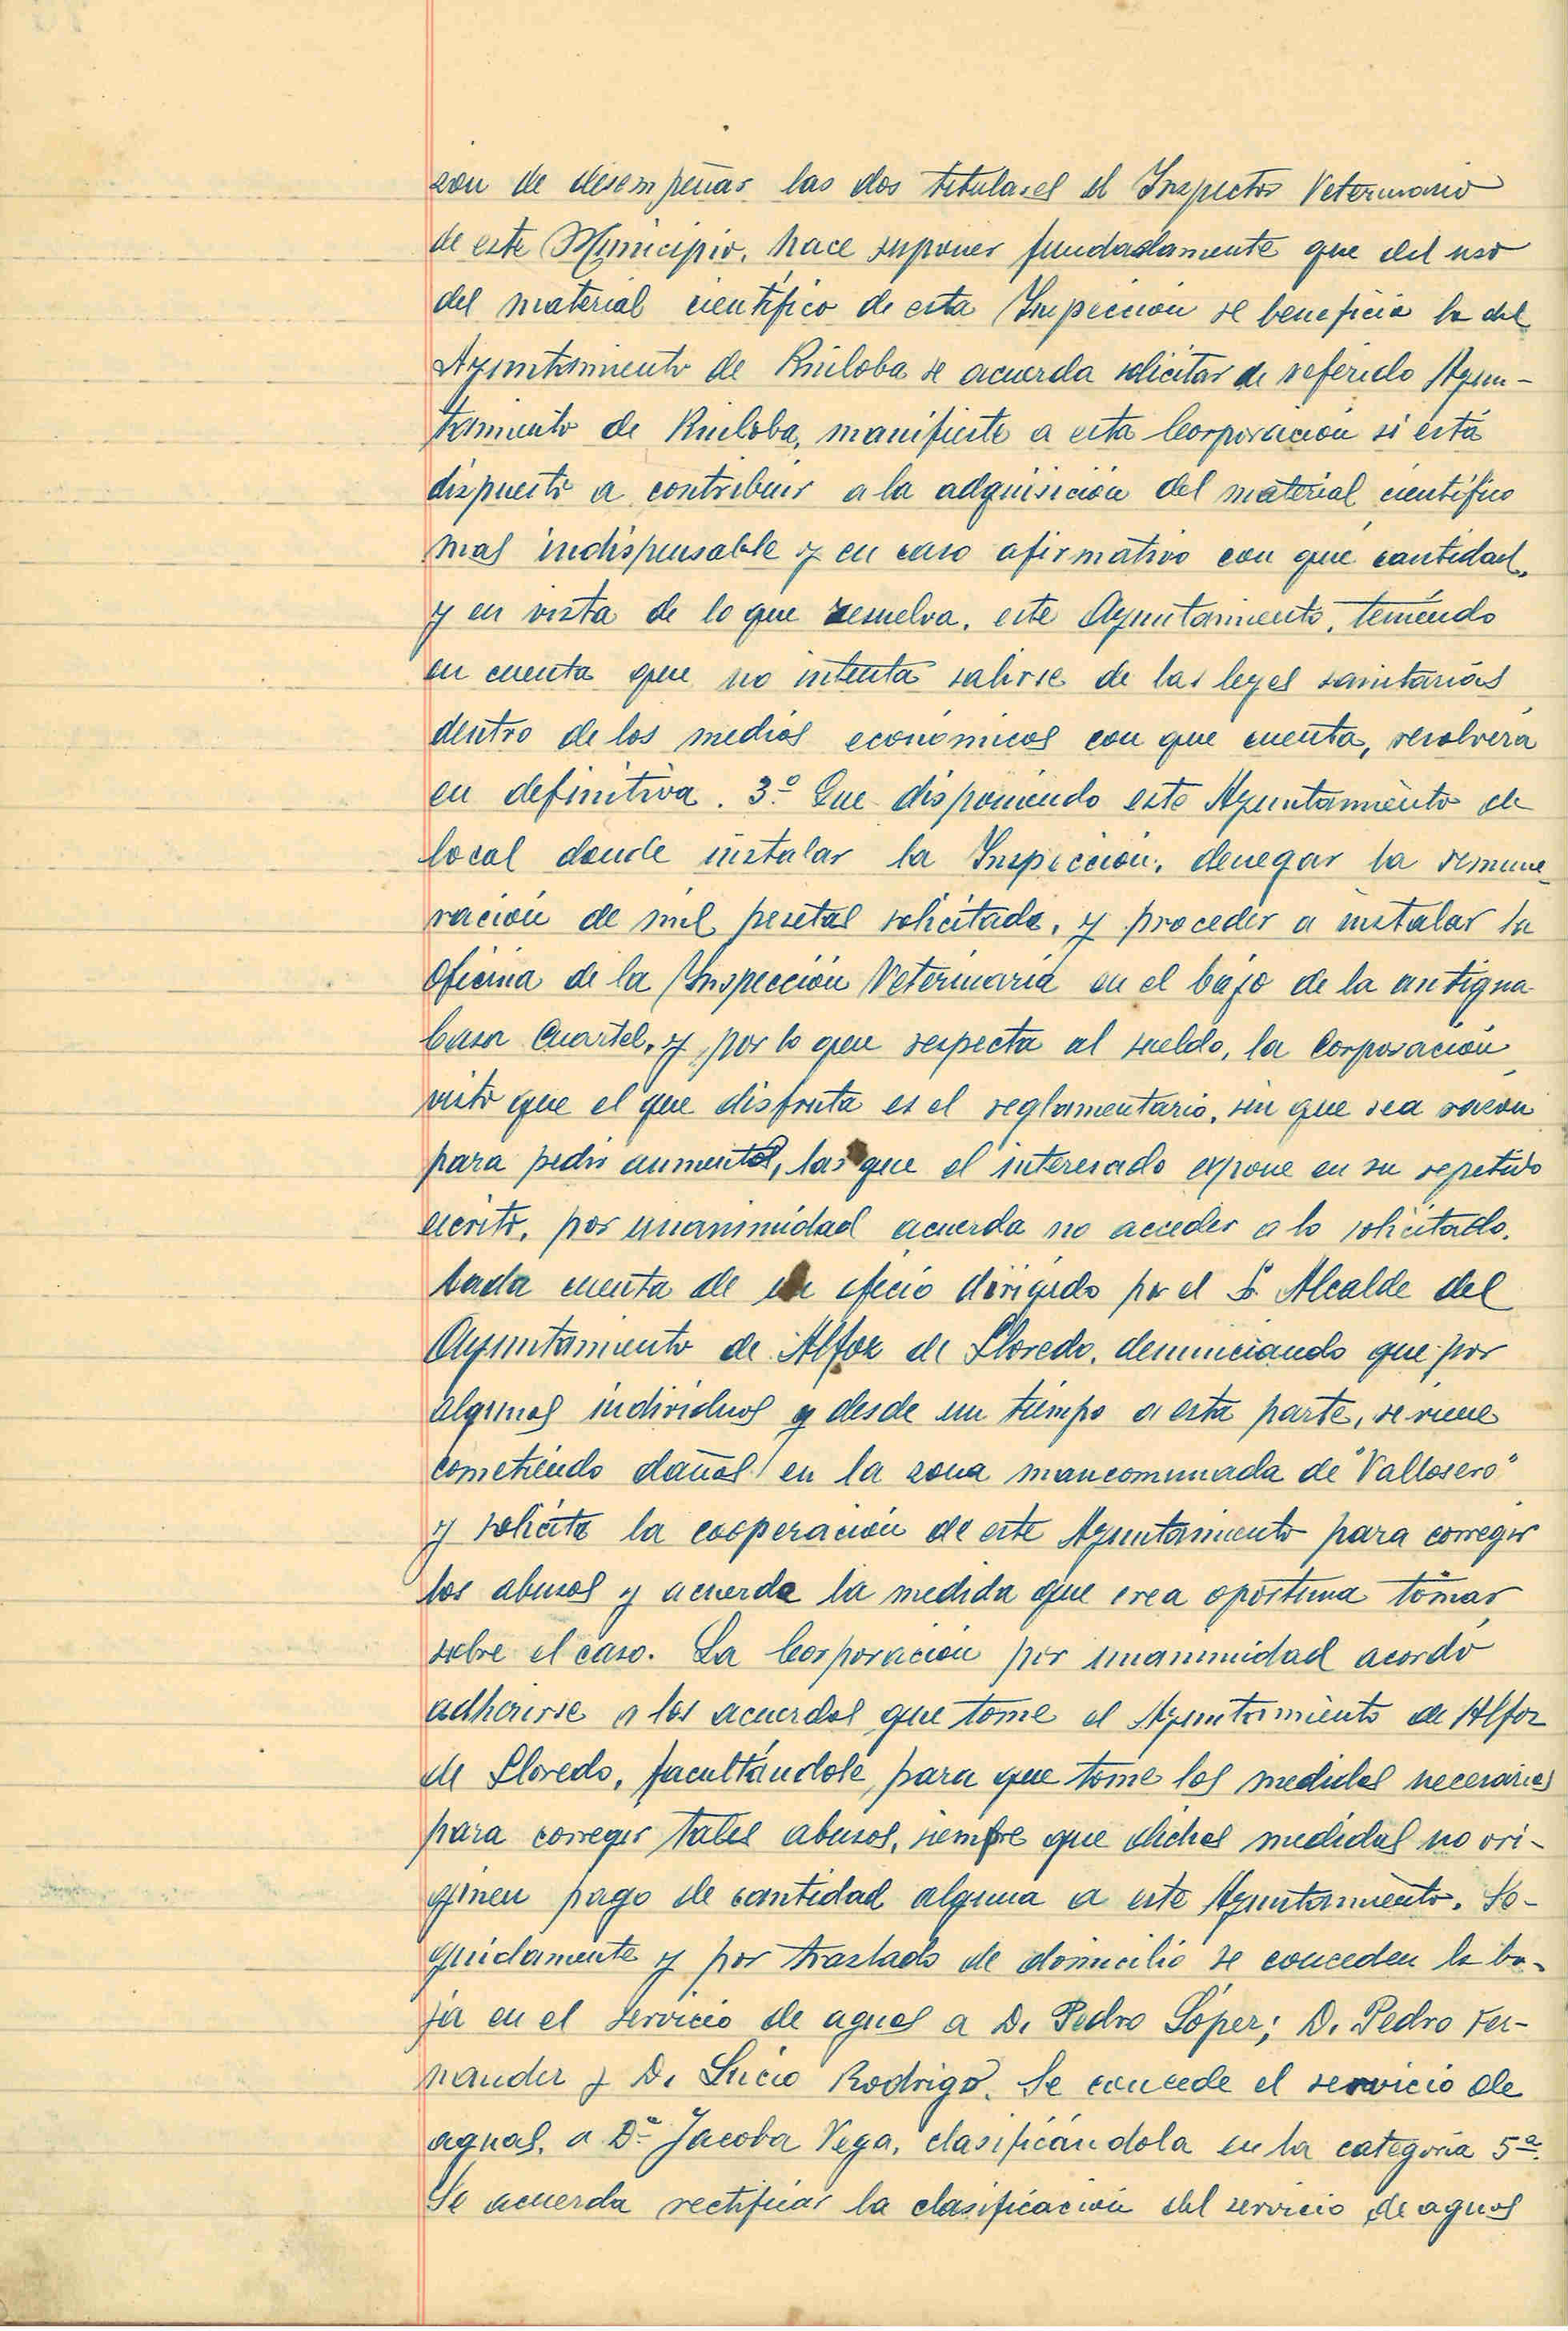 zon de desempeñar las dos titulares el Inspector Veterinario
de este Municipio, hace suponer fundadamente que del uso
del material científico de esta Inspección se beneficia la del
Ayuntamiento de Ruiloba se acuerda solicitar de referido Ayun-
tamiento de Ruiloba, manifieste a esta Corporación si está
dispuesto a contribuir a la adquisición del material científico
mas indispensable y en caso afirmativo con qué cantidad,
y en vista de lo que resuelva, este Ayuntamiento, teniendo
en cuenta que no intenta salirse de las leyes sanitarias
dentro de los medios económicos con que cuenta, resolverá
en definitiva. 3.º Que disponiendo este Ayuntamiento de
local donde instalar la Inspección, denegar la remune-
ración de mil pesetas solicitada, y proceder a instalar la
Oficina de la Inspección Veterinaria en el bajo de la antigua
Casa Cuartel, y por lo que respecta al sueldo, la Corporación,
visto que el que disfruta es el reglamentario, sin que sea razón
para pedir aumento, las que el interesado expone en su repetido
escrito, por unanimidad acuerda no acceder a lo solicitado.
Dada cuenta de un oficio dirigido por el Sr. Alcalde del
Ayuntamiento de Alfoz de Lloredo, denunciando que por
algunos individuos y desde un tiempo a esta parte, se viene
cometiendo daños en la zona mancomunada de "Vallosero"
y solicita la cooperación de este Ayuntamiento para corregir
los abusos y acuerda la medida que crea oportuna tomar
sobre el caso. La Corporación por unanimidad acordó
adherirse a los acuerdos que tome el Ayuntamiento de Alfoz
de Lloredo, facultándole para que tome las medidas necesarias
para corregir tales abusos, siempre que dichas medidas no ori-
ginen pago de cantidad alguna a este Ayuntamiento. Se-
guidamente y por traslado de domicilio se conceden la ba-
ja en el servicio de aguas a D. Pedro López; D. Pedro Fer-
nandez y D. Lucio Rodrigo. Se concede el servicio de
aguas, a Dª Jacoba Vega, clasificándola en la categoría 5ª.
Se acuerda rectificar la clasificación del servicio de aguas